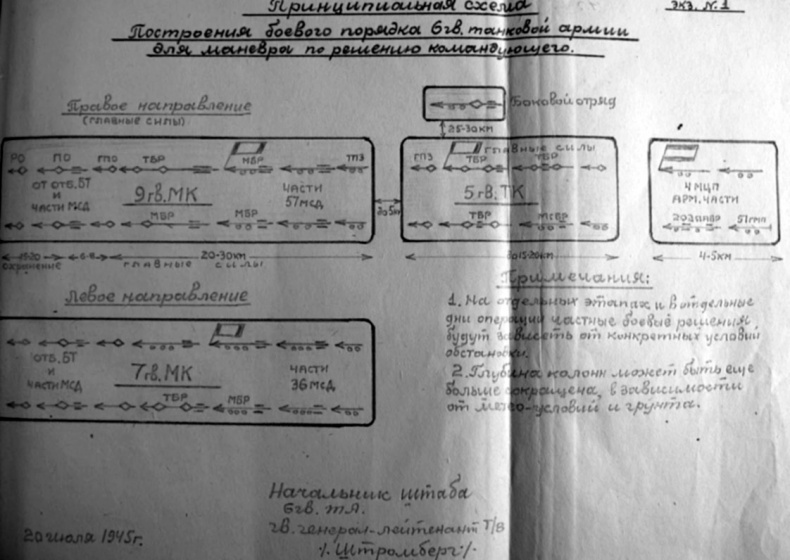 Принципиальная схема
экз. №1
Построения боевого порядка 6 гв. танковой армии
для маневра по решению командующего.
Правое направление
(главные силы)
Боковой отряд
25-30км
РО ПО ГПО ТБР МБР ТПЗ
ОТ ОТБ, БТ
И
ЧАСТИ МСД
9 гв. МК
ЧАСТИ
57 мсд
МБР МБР
20-30км
охранение
главные силы
до 5км
ГПЗ
главные силы
ТБР ТБР
5 гв. ТК
ТБР МсБР
до 15-20км
4 МЦП
АРМ. ЧАСТИ
202 ЛАБР 51 гмп
4-5км
Левое направление
ОТБ, БТ
И
ЧАСТИ МСД
7 гв. МК
ЧАСТИ
36 мсд
ТБР МБР
Примечания:
1. На отдельных этапах и в отдельные
дни операции частные боевые решения
будут зависеть от конкретных условий
обстановки.
2. Глубина колонн может быть еще
больше сокращена, в зависимости
от метео-условий и грунта.
Начальник штаба
6 гв. т.А.
гв. генерал-лейтенант т/в
/. Штромберг./.
20 июля 1945г.